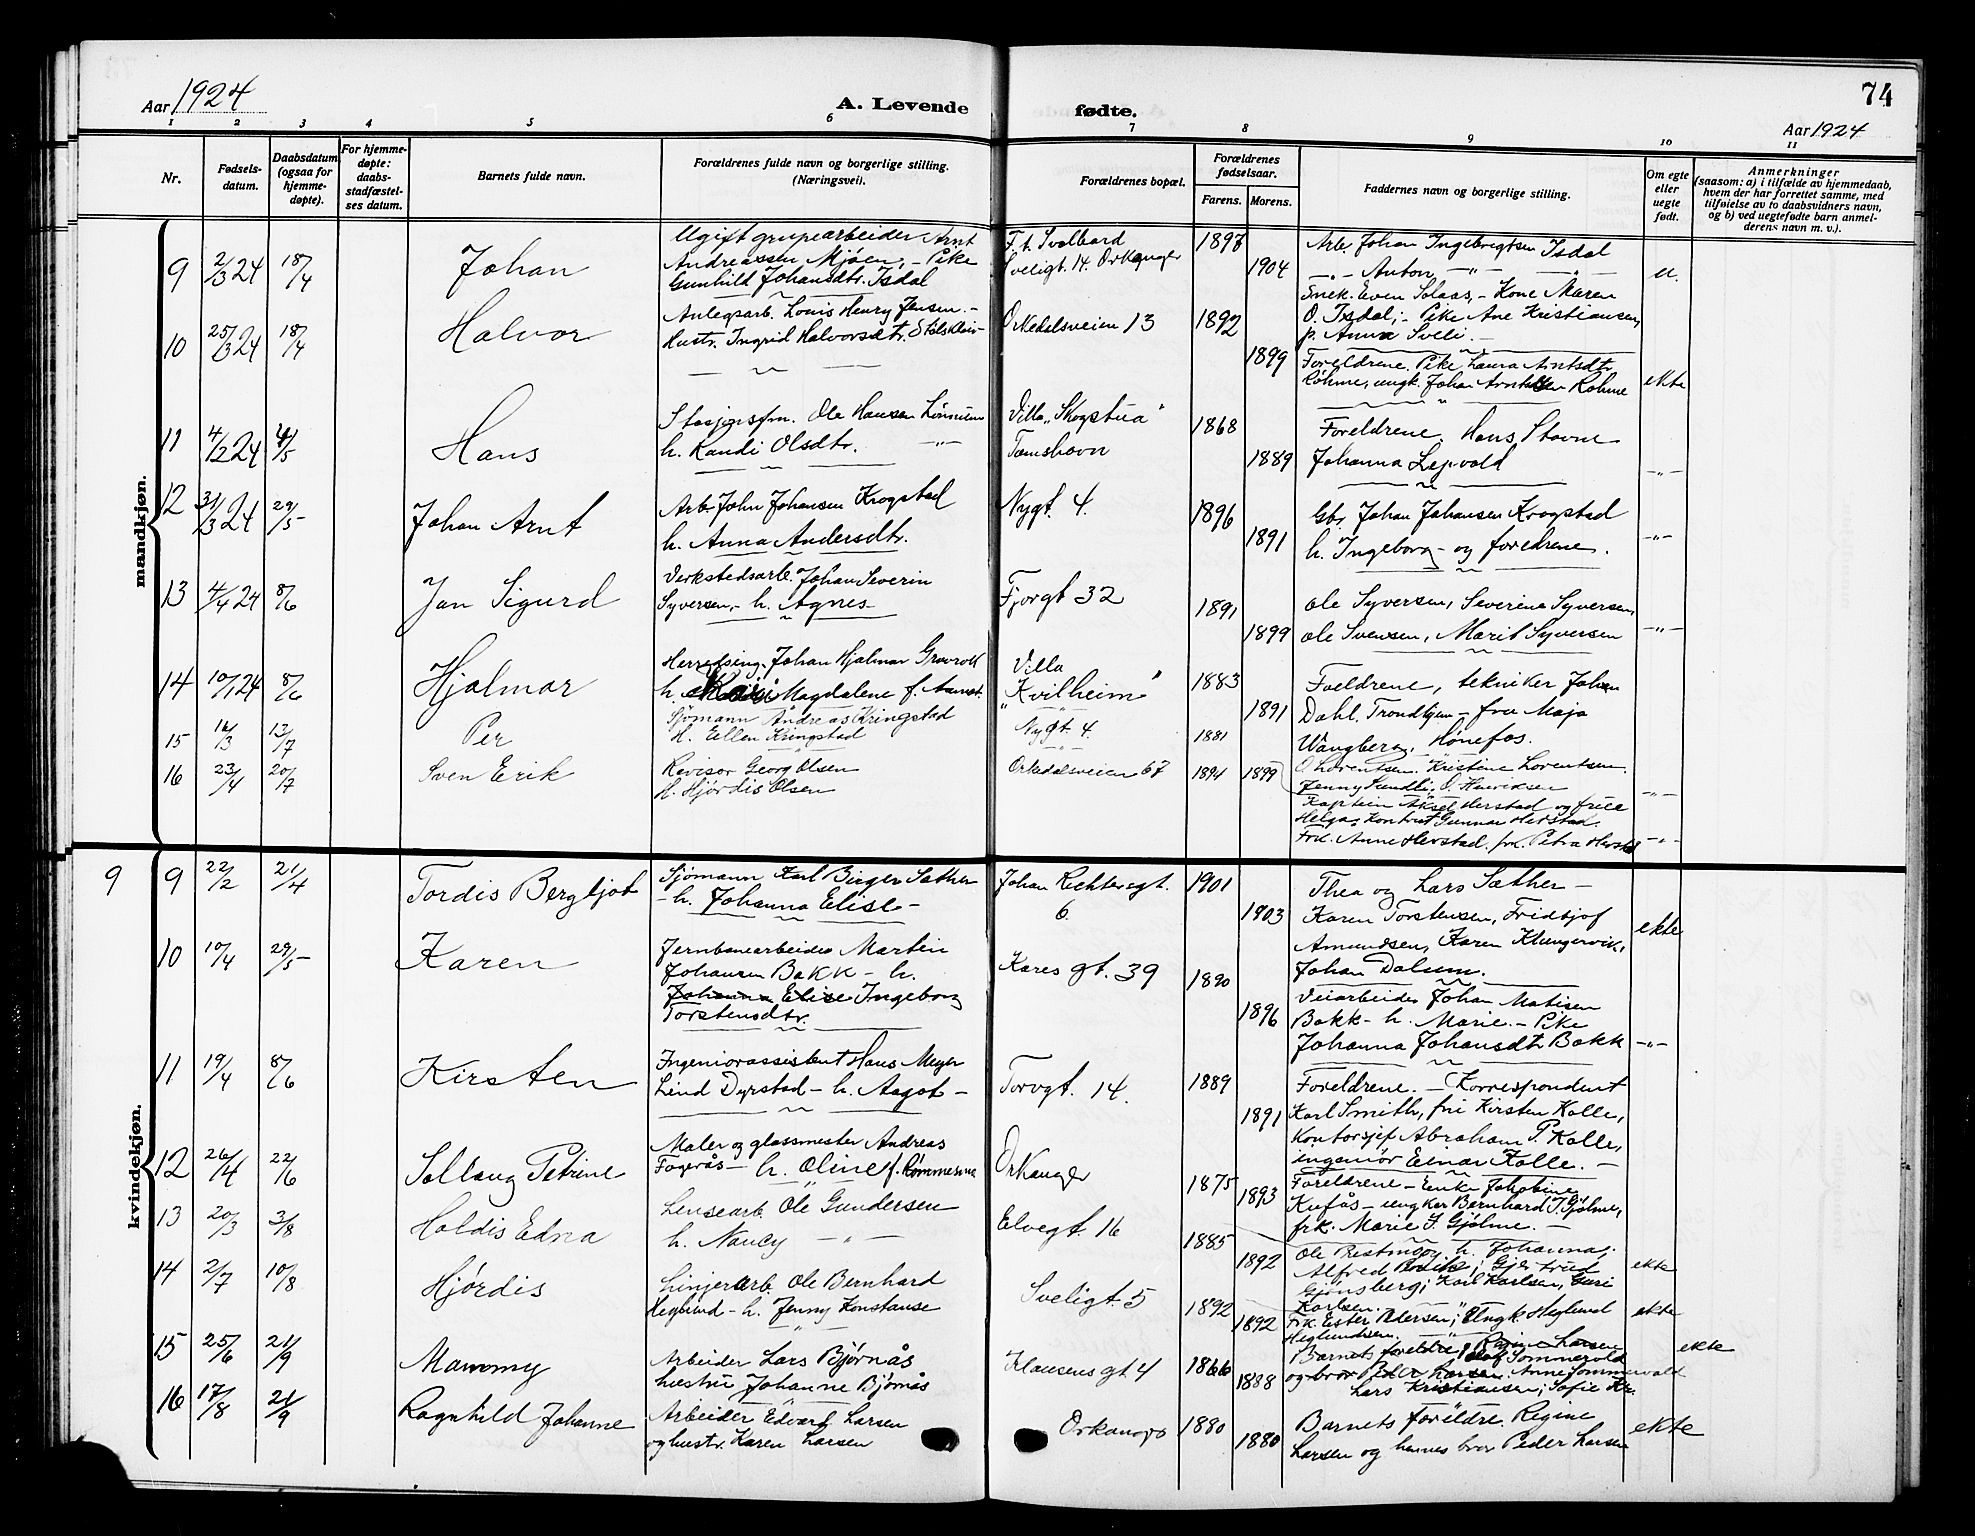 74
Aar 1924
A. Levende
fødte.
Aar 1924
1 2 3 4 5 6 7 8 9 10 11
Nr.
Fødsels-
datum.
Daabsdatum
(ogsaa for
hjemme-
døpte).
For hjemme-
døpte:
daabs-
stadfæstel-
ses datum.
Barnets fulde navn.
Forældrenes fulde navn og borgerlige stilling.
(Næringsvei).
Forældrenes bopæl.
Forældrenes
fødselsaar.
Farens. Morens.
Faddernes navn og borgerlige stilling.
Om egte
eller
uegte
født.
Anmerkninger
(saasom: a) i tilfælde av hjemmedaab,
hvem der har forrettet samme, med
tilføielse av to daabsvidners navn,
og b) ved uegtefødte barn anmel-
derens navn m. v.).
mandkjøn.
9 2/3 24 18/4 Johan
Ugift grupearbeider Arnt
Andreassen Mjøen, - Pike
Gunhild Johansdtr. Isdal
F. t. Svalbard
Sveligt. 14. Orkanger
1897
1904
Arb. Johan Ingebrigtsen Isdal
-"- Anton -"- -"-
Snek. Even Solaas, - Kone Maren
O. Isdal; - Pike Ane Kristiansen,
p. Anna Sveli. -
u.
10 25/3 24 18/4 Halvor
Anlegsarb. Louis Henry Jensen. -
Hustr. Ingrid Halvorsdtr.
Orkedalsveien 13
1892
1899
Foreldrene. Pike Laura Arntsdtr
Røhme, ungk. Johan Arntsen Røhme
ekte
11 4/2 24 4/5 Hans
Stasjonsfm. Ole Hansen
h. Randi Olsdtr. -"-
Villa "Skogstua"
Tamshavn
1868
1889
Foreldrene. Hans Stavne
Johanna
-"-
12 31/3 24 29/5 Johan Arnt
Arb. John Johansen Krogstad
h. Anna Andersdtr.
Nygt. 4.
1896
1891
Gbr. Johan Johansen Krogstad
h. Ingeborg - og foreldrene.
-"-
13 4/4 24 8/6 Jan Sigurd
Verkstedsarb. Johan Severin
Syversen, - h. Agnes -
Fjorgt 32
1891
1899
Ole Syversen, Severine Syversen,
Ole Svensen, Marit Syversen
-"-
14 10/1 24 8/6 Hjalmar
Herredsing. Johan Hjalmar Gravrok
h. Kaisi Magdalene f.
Villa
"Kvilheim"
1883
1891
Foreldrene, tekniker Johan
Dahl, Trondhjem - frue Maja
Wangberg, Hønefos.
15 16/3 13/7 Per
Sjømann Andreas Kringstad
H. Ellen Kringstad
Nygt. 4.
1881
1899
O. Lorentsen. Kristine Lorentsen.
Jenny Sundli, O. Henriksen
-"-
16 23/4 20/7 Sven Erik
Revisor Georg Olsen
H. Hjördis Olsen
Orkedalsveien 67
1894
Kaptein Aksel Herstad og frue
Helga, Kontrist Gunnar Herstad.
Frk. Anne Herstad, frk. Petra Herstad
-"-
kvindekjøn.
9 9 22/2 21/4 Tordis Bergljot
Sjömann Karl Birger Sæther
- h. Johanna Elise -
Johan Richtersgt.
6.
1901
1903
Thea og Lars Sæther -
Karen Torstensen, Fridtjof
Amundsen, Karen Klungervik,
Johan Dalsem.
ekte
10 10/4 29/5 Karen
Jernbanearbeider Martin
Johansen Bakk - h.
Johanna Elise Ingeborg
Torstensdtr.
Kares gt. 39
1890
1896
Veiarbeider Johan Matisen
Bakk - h. Marie. - Pike
Johanna Johansdtr Bakk
-"-
11 19/4 8/6 Kirsten
Ingeniorassistent Hans Meyer
Lind Dyrstad - h. Aagot -
Torvgt. 14.
1889
1891
Foreldrene. - Korrespondent
Karl Smith, fru Kirsten Kolle,
Kontorsjef Abraham P. Kolle,
ingeniør Einar Kolle. -
12 26/4 22/6 Sollaug Petrine
Maler og glassmester Andreas
Fagerås - h. Oline f.
Orkanger
1875
1893
Foreldrene - Enke Jakobine
Kufås - ungkar Bernhard J. Gjølme,
frk. Marie J. Gjølme. -
13 20/3 3/8 Haldis Edna
Lensearb. Ole Gundersen
h. Nancy -"-
Elvegt. 16
1885
1892
Ole h. Johanna;
Alfred Gjertrud
Gjønsberg; Karl Karlsen, Guri
Karlsen.
ekte
14 2/7 10/8 Hjördis
Linjearb. Ole Bernhard
Heglund - h. Jenny Konstanse
Sveligt. 5
1892
1892
Frk. Ester Pedersen; Ungk. Heglund
Heglundsen.
ekte
15 25/6 21/9 Mammy
Arbeider Lars Bjørnås
hustru Johanne Bjørnås
Klausens gt 4
1866
1888
Barnets foreldre, Regine Larsen Olaf Sommervold
og bror Peder Larsen. Anne Sommervold
Lars Kristiansen; Sofie Kr.
ekte
16 17/8 21/9 Ragnhild Johanne
Arbeider Edvard Larsen
og hustr. Karen Larsen
Orkanger
1880
1880
Barnets foreldre. Regine
Larsen og hennes bror Peder Larsen
ekte